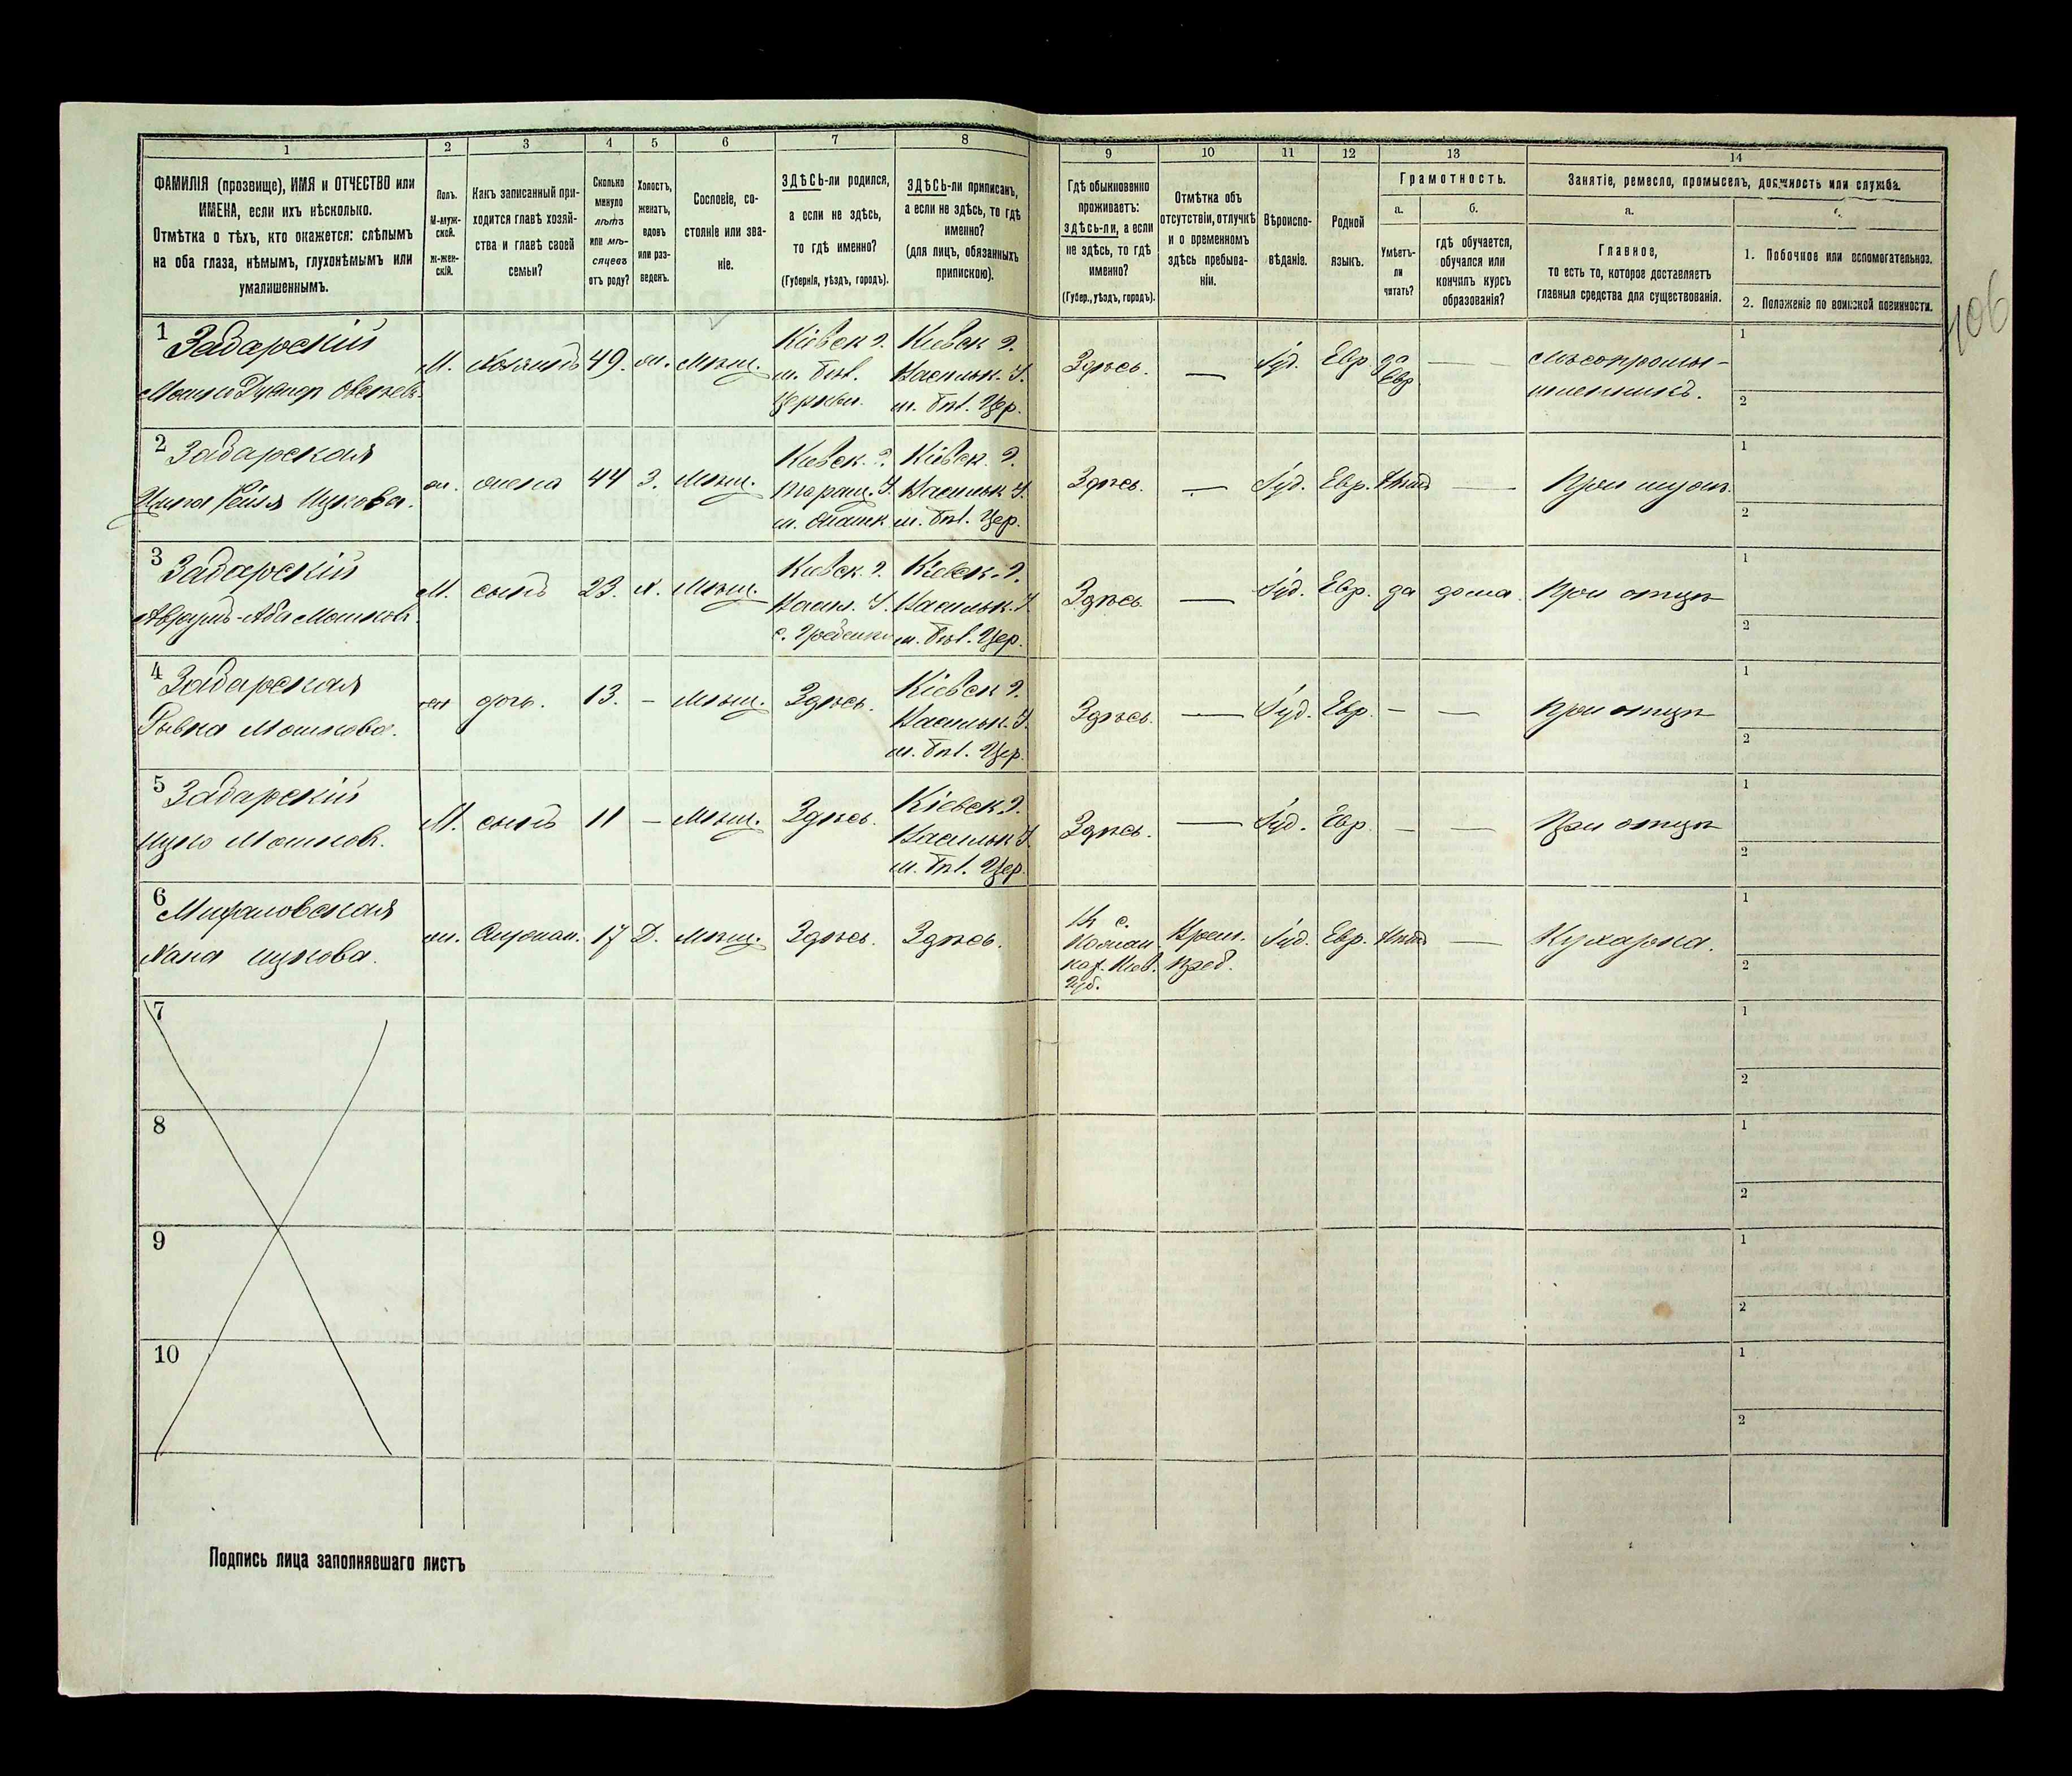 1 2 3 4 5 6 7 8 9 10 11 12 13 14
ФАМИЛІЯ (прозвище), ИМЯ и ОТЧЕСТВО или
ИМЕНА, если ихъ нѣсколько.
Отмѣтка о тѣхъ, кто окажется: слѣпымъ
на оба глаза, нѣмымъ, глухонѣмымъ или
умалишеннымъ.
Полъ.
М-муж-
ской.
ж-жен-
скій.
Какъ записанный при-
ходится главѣ хозяй-
ства и главѣ своей
семьи?
Сколько
минуло
лѣтъ
или мѣ-
сяцевъ
отъ роду?
Холостъ,
женатъ,
вдовъ
или раз-
веденъ.
Сословіе, со-
стояніе или зва-
ніе.
ЗДѢСЬ-ли родился,
а если не здѣсь,
то гдѣ именно?
(Губернія, уѣздъ, городъ).
ЗДѢСЬ-ли приписанъ,
а если не здѣсь, то гдѣ
именно?
(для лицъ, обязанныхъ
припискою).
Гдѣ обыкновенно
проживаетъ:
здѣсь-ли, а если
не здѣсь, то гдѣ
именно?
(Губер., уѣздъ, городъ).
Отмѣтка объ
отсутствіи, отлучкѣ
и о временномъ
здѣсь пребыва-
ніи.
Вѣроиспо-
вѣданіе.
Родной
языкъ.
Грамотность.
а.
Умѣетъ-
ли
читать?
б.
гдѣ обучается,
обучался или
кончилъ курсъ
образованія?
Занятіе, ремесло, промыселъ, должность или служба.
а.
Главное,
то есть то, которое доставляетъ
главныя средства для существованія.
1. Побочное или вспомогательное.
2. Положеніе по воинской повинности.
106
1 Задарскій
М. Хозяинъ 49. ж. Мѣщ.
Кіевск г.
м. Бѣл.
Церкви.
Кіевск г.
Васильк. У.
м. Бѣл. Цер.
Здѣсь. — Іуд. Евр да
Евр — —
Мясопромы-
шленникъ.
1
2
2 Задарская
ж. жена 44 З. Мѣщ.
Кіевск. г.
Таращ. У.
Кіевск. г.
Васильк У.
м. Бѣл. Цер.
Здѣсь. — Іуд. Евр. Нѣтъ — При мужѣ.
1
2
3 Задарскій
Аврумъ-Аба Мошков.
М. сынъ 23. х. Мѣщ.
Кіевск. г.
Васил. У.
с. Гребенки
Кіевск. г.
Васильк. У.
м. Бѣл. Цер.
Здѣсь — Іуд. Евр. да дома. При отцѣ
1
2
4 Задарская
Рывка Мошкова.
жен дочь. 13. — Мѣщ. Здѣсь.
Кіевск г.
Васильк. У.
м. Бѣл. Цер.
Здѣсь. — Іуд. Евр. — — При отцѣ
1
2
5 Задарскій
Ицко Мошков.
М. сынъ 11 — Мѣщ. Здѣсь.
Кіевск. г.
Васильк У.
м. Бѣл. Цер.
Здѣсь. — Іуд. Евр. — — При отцѣ
1
2
6
Хана Ицкова.
ж. 17 Д. Мѣщ. Здѣсь. Здѣсь.
Кіев.
Губ.
Врем.
преб.
Іуд. Евр. Нѣтъ — Кухарка.
1
2
7
1
2
8
1
2
9
1
2
10
1
2
Подпись лица заполнявшаго листъ